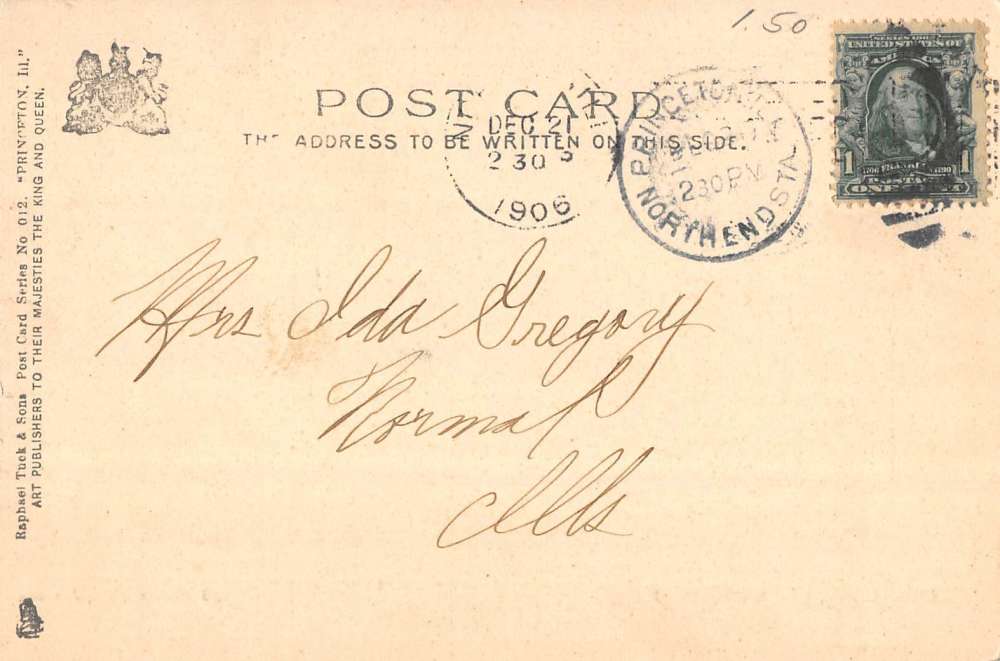 1.50
SERIES 1902
UNITED STATES OF
AMERICA
1 1
POSTAGE
ONE CENT
POST CARD
THE ADDRESS TO BE WRITTEN ON THIS SIDE.
DEC 21
2 30 P
1906
PRINCETON
230 PM
NORTH END STA
Mrs Ida Gregory
Normal
Ills
Raphael Tuck & Sons Post Card Series No 012. "PRINCETON, Ill."
ART PUBLISHERS TO THEIR MAJESTIES THE KING AND QUEEN.